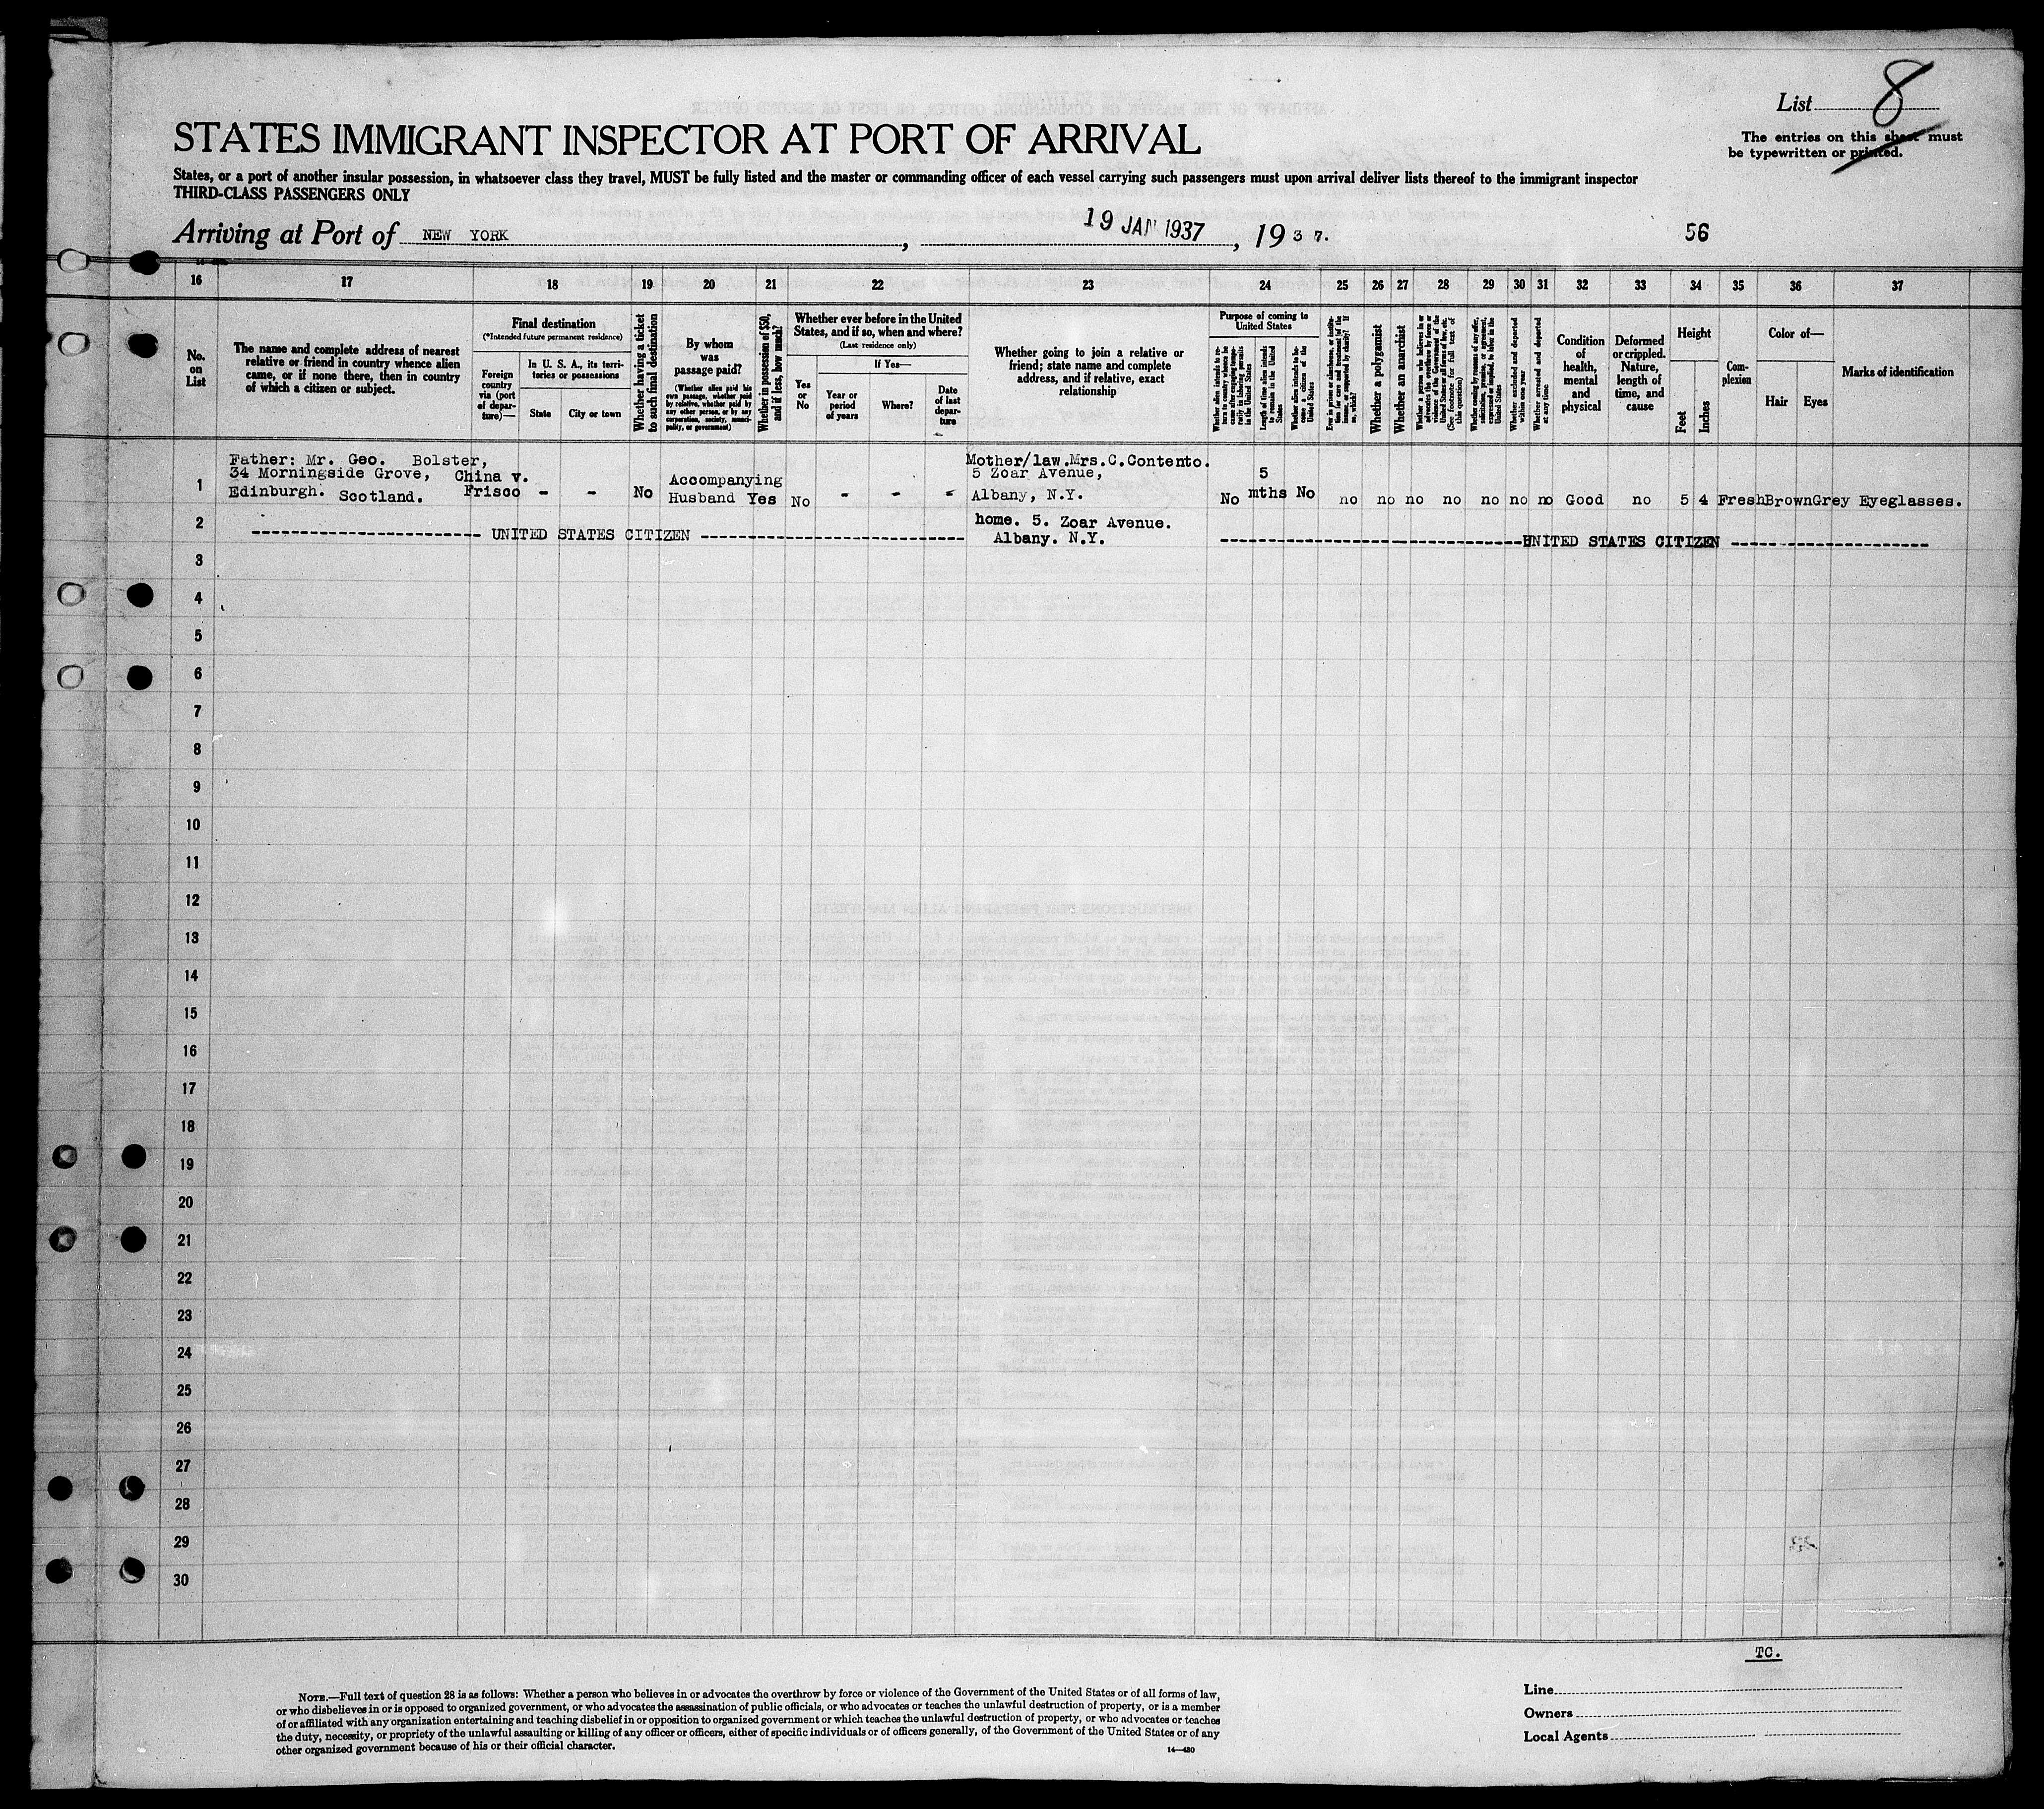 List 8
The entries on this sheet must
be typewritten or printed.
STATES IMMIGRANT INSPECTOR AT PORT OF ARRIVAL
States, or a port of another insular possession, in whatsoever class they travel, MUST be fully listed and the master or commanding officer of each vessel carrying such passengers must upon arrival deliver lists thereof to the immigrant inspector
THIRD-CLASS PASSENGERS ONLY
Arriving at Port of NEW YORK, 19 JAN 1937, 193 7.
56
16 17 18 19 20 21 22 23 24 25 26 27 28 29 30 31 32 33 34 35 36 37
No.
on
List
The name and complete address of nearest
relative or friend in country whence alien
came, or if none there, then in country
of which a citizen or subject.
Final destination
(*Intended future permanent residence)
Foreign
country
via (port
of depar-
ture)—
In U. S. A., its terri-
tories or possessions
State
City or town
Whether having a ticket
to such final destination
By whom
was
passage paid?
(Whether alien paid his
own passage, whether paid
by relative, whether paid by
any other person, or by any
corporation, society, munici-
pality, or government)
Whether in possession of $50,
and if less, how much?
Whether ever before in the United
States, and if so, when and where?
(Last residence only)
Yes
or
No
If Yes—
Year or
period
of years
Where?
Date
of last
depar-
ture
Whether going to join a relative or
friend; state name and complete
address, and if relative, exact
relationship
Purpose of coming to
United States
Whether alien intends to re-
turn to country whence he
came after engaging tempo-
rarily in laboring pursuits
in the United States
Length of time alien intends
to remain in the United
States
Whether alien intends to be-
come a citizen of the
United States
Ever in prison or almshouse, or institu-
tion for care and treatment of the
insane, or supported by charity? If
so, which?
Whether a polygamist
Whether an anarchist
Whether a person who believes in or
advocates the overthrow by force or
violence of the Government of the
United States or all forms of law, etc.
(See footnote for full text of
this question)
Whether coming by reason of any offer,
solicitation, promise, or agreement,
expressed or implied, to labor in the
United States
Whether excluded and deported
within one year
Whether arrested and deported
at any time
Condition
of
health,
mental
and
physical
Deformed
or crippled.
Nature,
length of
time, and
cause
Height
Feet
Inches
Com-
plexion
Color of—
Hair
Eyes
Marks of identification
1
Father: Mr. Geo. Bolster,
34 Morningside Grove,
Edinburgh. Scotland.
China v.
Frisco - - No
Accompanying
Husband Yes No - - -
Mother/law.Mrs.C.Contento.
5 Zoar Avenue,
Albany, N.Y.
No
5
mths No no no no no no no no Good no 5 4 Fresh Brown Grey Eyeglasses.
2
---------------------- UNITED STATES CITIZEN -------------------------
home. 5. Zoar Avenue.
Albany. N.Y.
----------------------------UNITED STATES CITIZEN ------------------
3
4
5
6
7
8
9
10
11
12
13
14
15
16
17
18
19
20
21
22
23
24
25
26
27
28
29
30
TC.
NOTE.—Full text of question 28 is as follows: Whether a person who believes in or advocates the overthrow by force or violence of the Government of the United States or of all forms of law,
or who disbelieves in or is opposed to organized government, or who advocates the assassination of public officials, or who advocates or teaches the unlawful destruction of property, or is a member
of or affiliated with any organization entertaining and teaching disbelief in or opposition to organized government or which teaches the unlawful destruction of property, or who advocates or teaches
the duty, necessity, or propriety of the unlawful assaulting or killing of any officer or officers, either of specific individuals or of officers generally, of the Government of the United States or of any
other organized government because of his or their official character.
14—430
Line
Owners
Local Agents